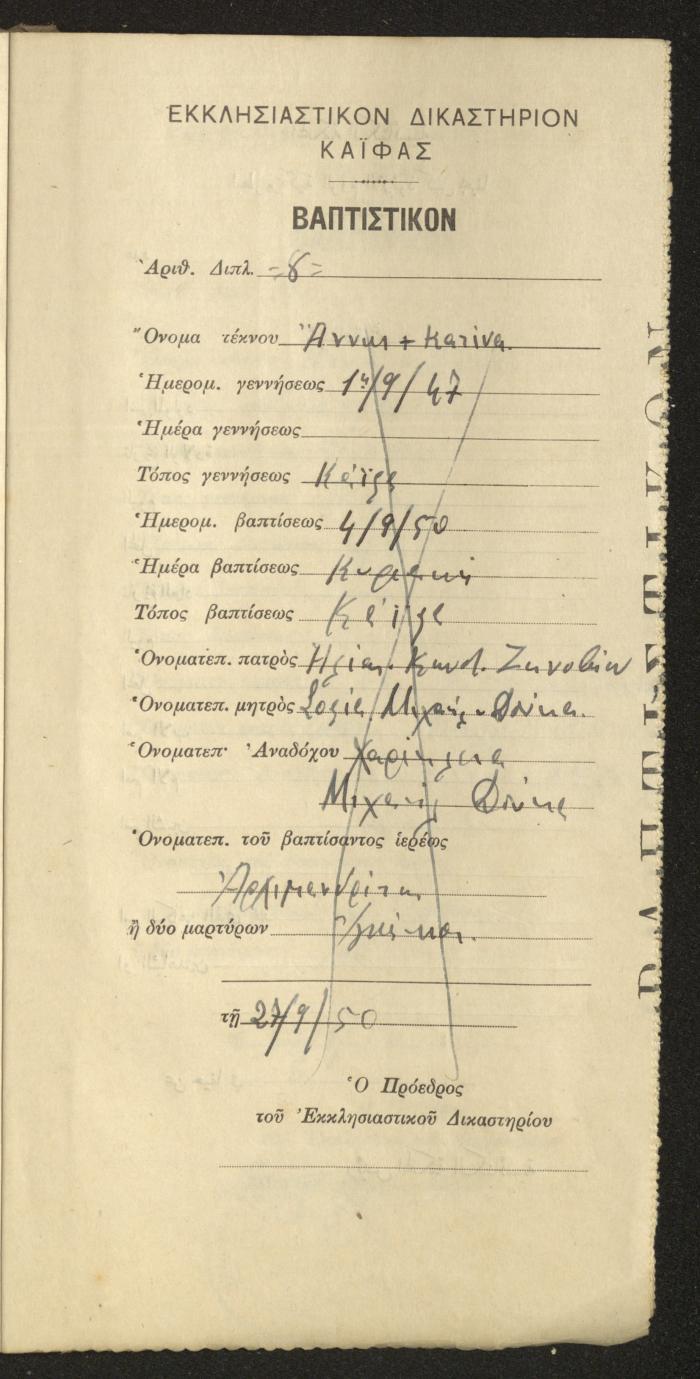 ἘΚΚΛΗΣΙΑΣΤΙΚΟΝ ΔΙΚΑΣΤΗΡΙΟΝ
ΚΑΪΦΑΣ
ΒΑΠΤΙΣΤΙΚΟΝ
Ἀριθ. Διπλ. =8=
Ὄνομα τέκνου Ἄννα + Κατίνα
Ἡμερομ. γεννήσεως /9/47
Ἡμέρα γεννήσεως
Τόπος γεννήσεως Κάϊφα
Ἡμερομ. βαπτίσεως 4/9/50
Ἡμέρα βαπτίσεως Κυριακὴ
Τόπος βαπτίσεως Κάϊφα
Ὀνοματεπ. πατρὸς Ἠλίας
Ὀνοματεπ. μητρὸς Σοφία Μιχαὴλ
Ὀνοματεπ· Ἀναδόχου Χαρίκλεια
Μιχαὴλ
Ὀνοματεπ. τοῦ βαπτίσαντος ἱερέως
Ἀρχιμανδρίτης
ἢ δύο μαρτύρων
τῇ 27/9/50
Ὁ Πρόεδρος
τοῦ Ἐκκλησιαστικοῦ Δικαστηρίου
ΒΑΠΤΙΣΤΙΚΟΝ